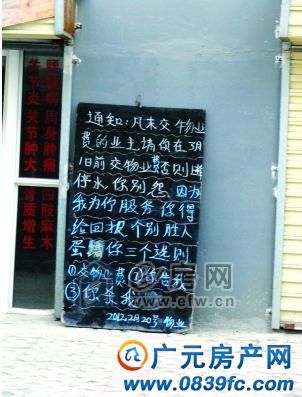 通知:凡未交物业
费的业主请你在3月
1日前交物业费否则进
停水你别怨因为
我为你服务你得
给回报个别胜人
蛋请你三个选则
①交物业费②你告我
③你杀我
2012.2月20号 物业
腰
周身肿痛
四肢麻木
关节炎
关节肿大
骨质增生
房网
www.efw.cn
广元房产网
www.0839fc.com